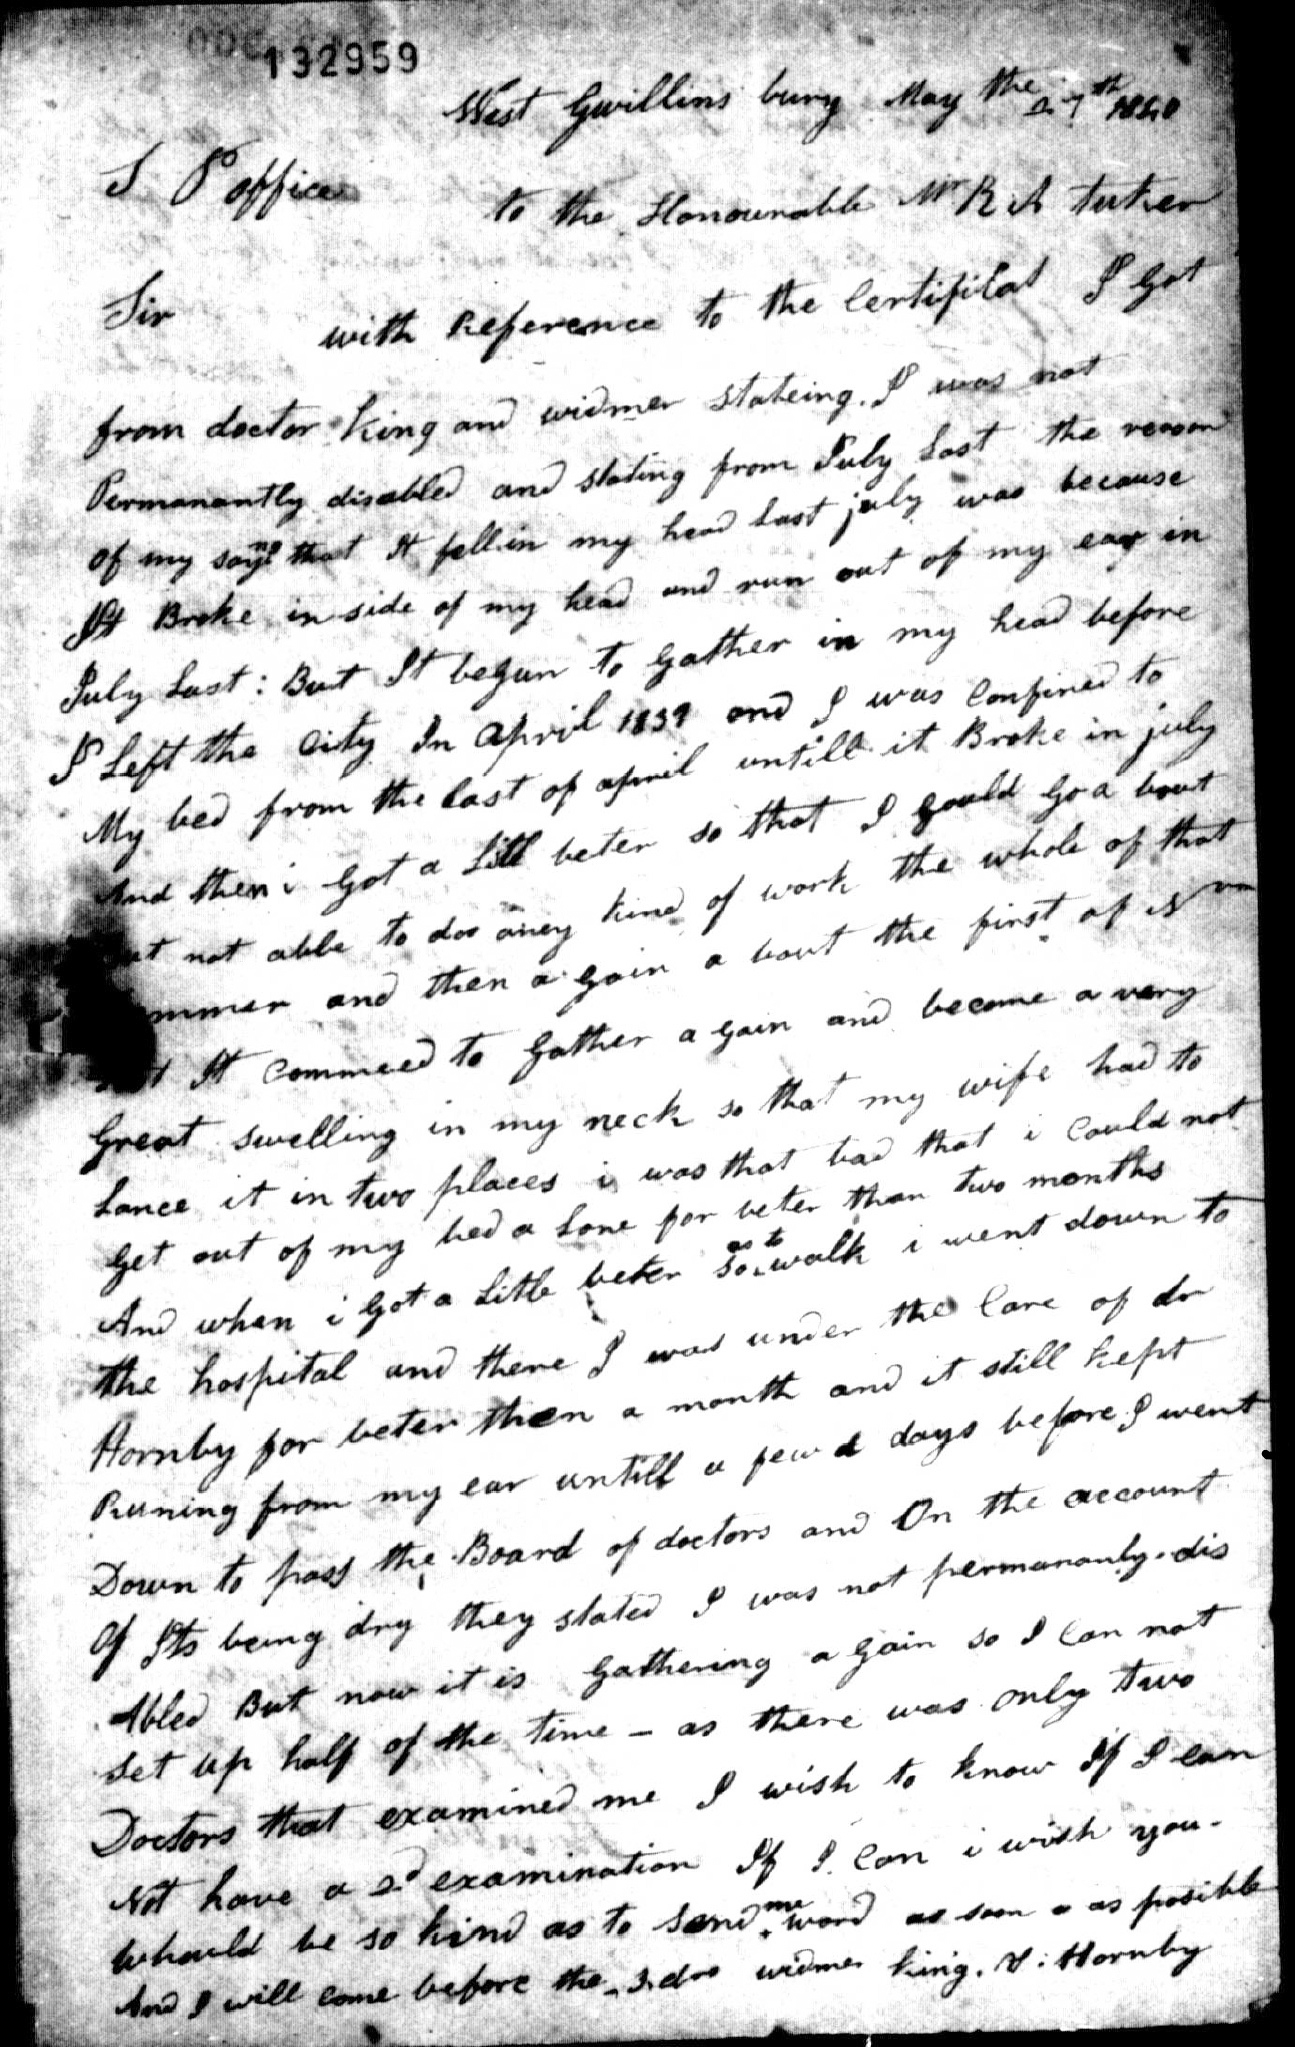 132959
West Gwillins bury May the 27th 1840
S P office
to the Honourable Mr R A tuker
Sir
with Reference to the Certificat I Got
from doctor King and widmer stateing. I was not
Permanantly disabled and stating from July Last the reason
of my sayng that It fell in my head Last july was because
It Broke in side of my head and run out of my ear in
July Last: But It begun to Gather in my head before
I Left the City In April 1839 and I was Confined to
My bed from the last of april untill it Broke in july
And then i Got a Litl beter so that I Could Go a bout
but not able to doo aney kind of work the whole of that
summer and then a Gain a bout the first of
It commeed to Gather a Gain and became a very
Great swelling in my neck so that my wife had to
Lance it in two places i was that bad that i Could not
Get out of my bed a Lone for beter than two months
And when i Got a Litle beter so as to walk i went down to
the hospital and there I was under the Care of dr
Hornby for beter then a month and it still kept
Runing from my ear untill a few d days before I went
Down to pass the Board of doctors and On the account
Of Its being dry they stated I was not permananly dis
Abled But now it is Gathering a Gain so I Can not
Set up half of the time - as there was only two
Doctors that examined me I wish to know If I can
Not have a 2d examination If I Can i wish you
Whould be so kind as to Send me word as soon a as posible
And I will come before the 3 drs widmer King. &: Hornby